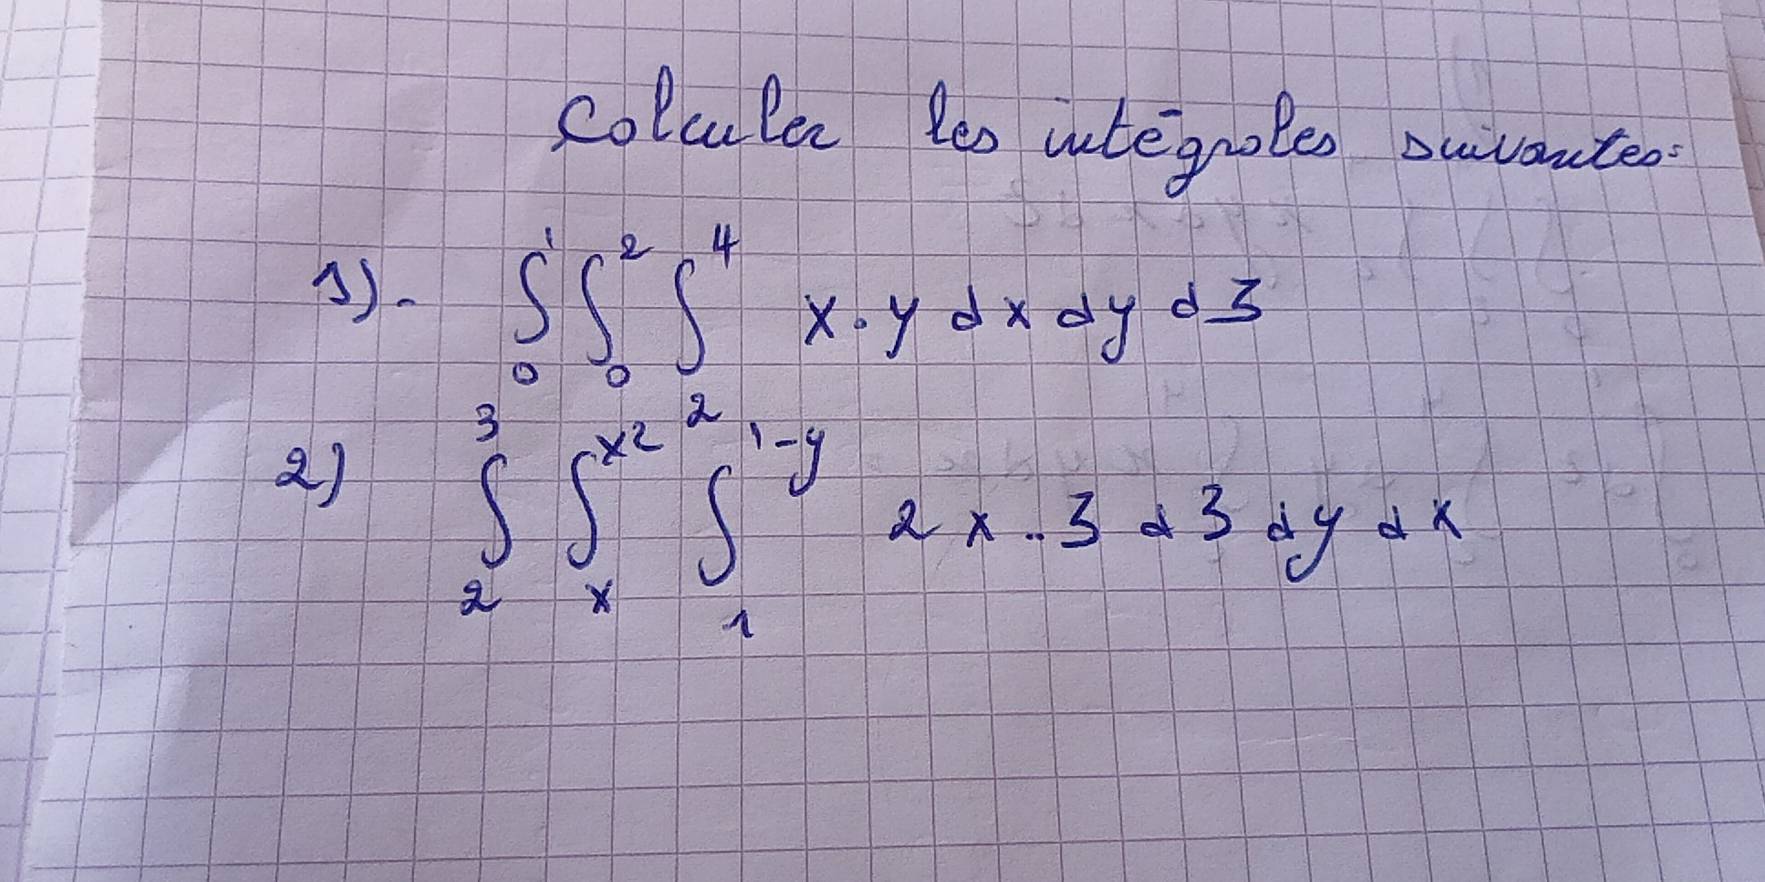 Calculer les intégrales suivantes:
1). ∫₀¹ ∫₀² ∫₂⁴ x.y dx dy dz
2) ∫₂³ ∫ₓ^x² ∫₁^1-y 2x..z dz dy dx